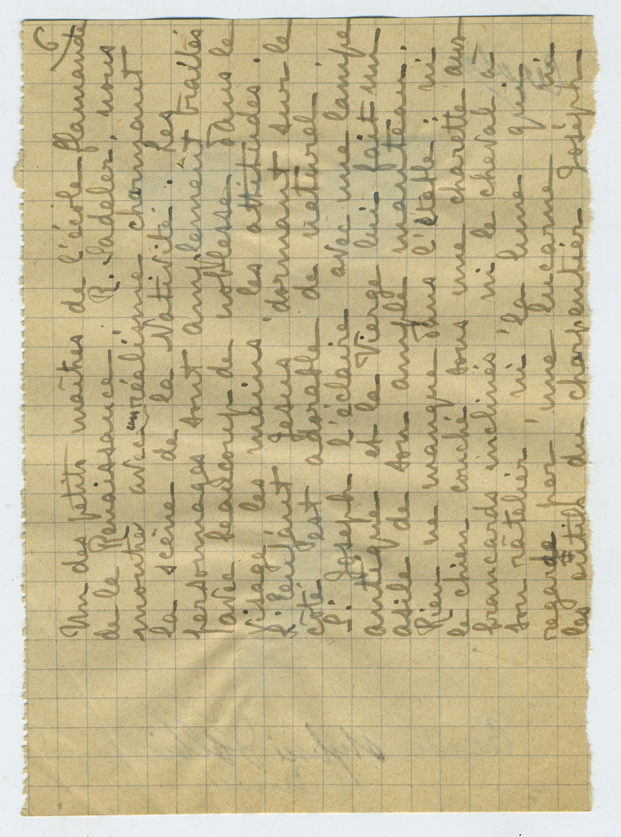 6
Un des petits maîtres de l'école flamande
de la Renaissance R. Sadeler, nous
montre avec un réalisme charmant
la scène de la Nativité. Les
personnages sont amplement traités
avec beaucoup de noblesse dans le
visage les mains les attitudes.
L'Enfant Jesus dormant sur le
côté est adorable de naturel.
S. Joseph l'éclaire avec une lampe
antique et la Vierge lui fait un
asile de son ample manteau.
Rien ne manque dans l'étable; ni
le chien couché sous une charette aux
brancards inclinés ni le cheval à
son râtelier ni la lune qui
regarde par une lucarne ni
les outils du charpentier Joseph.